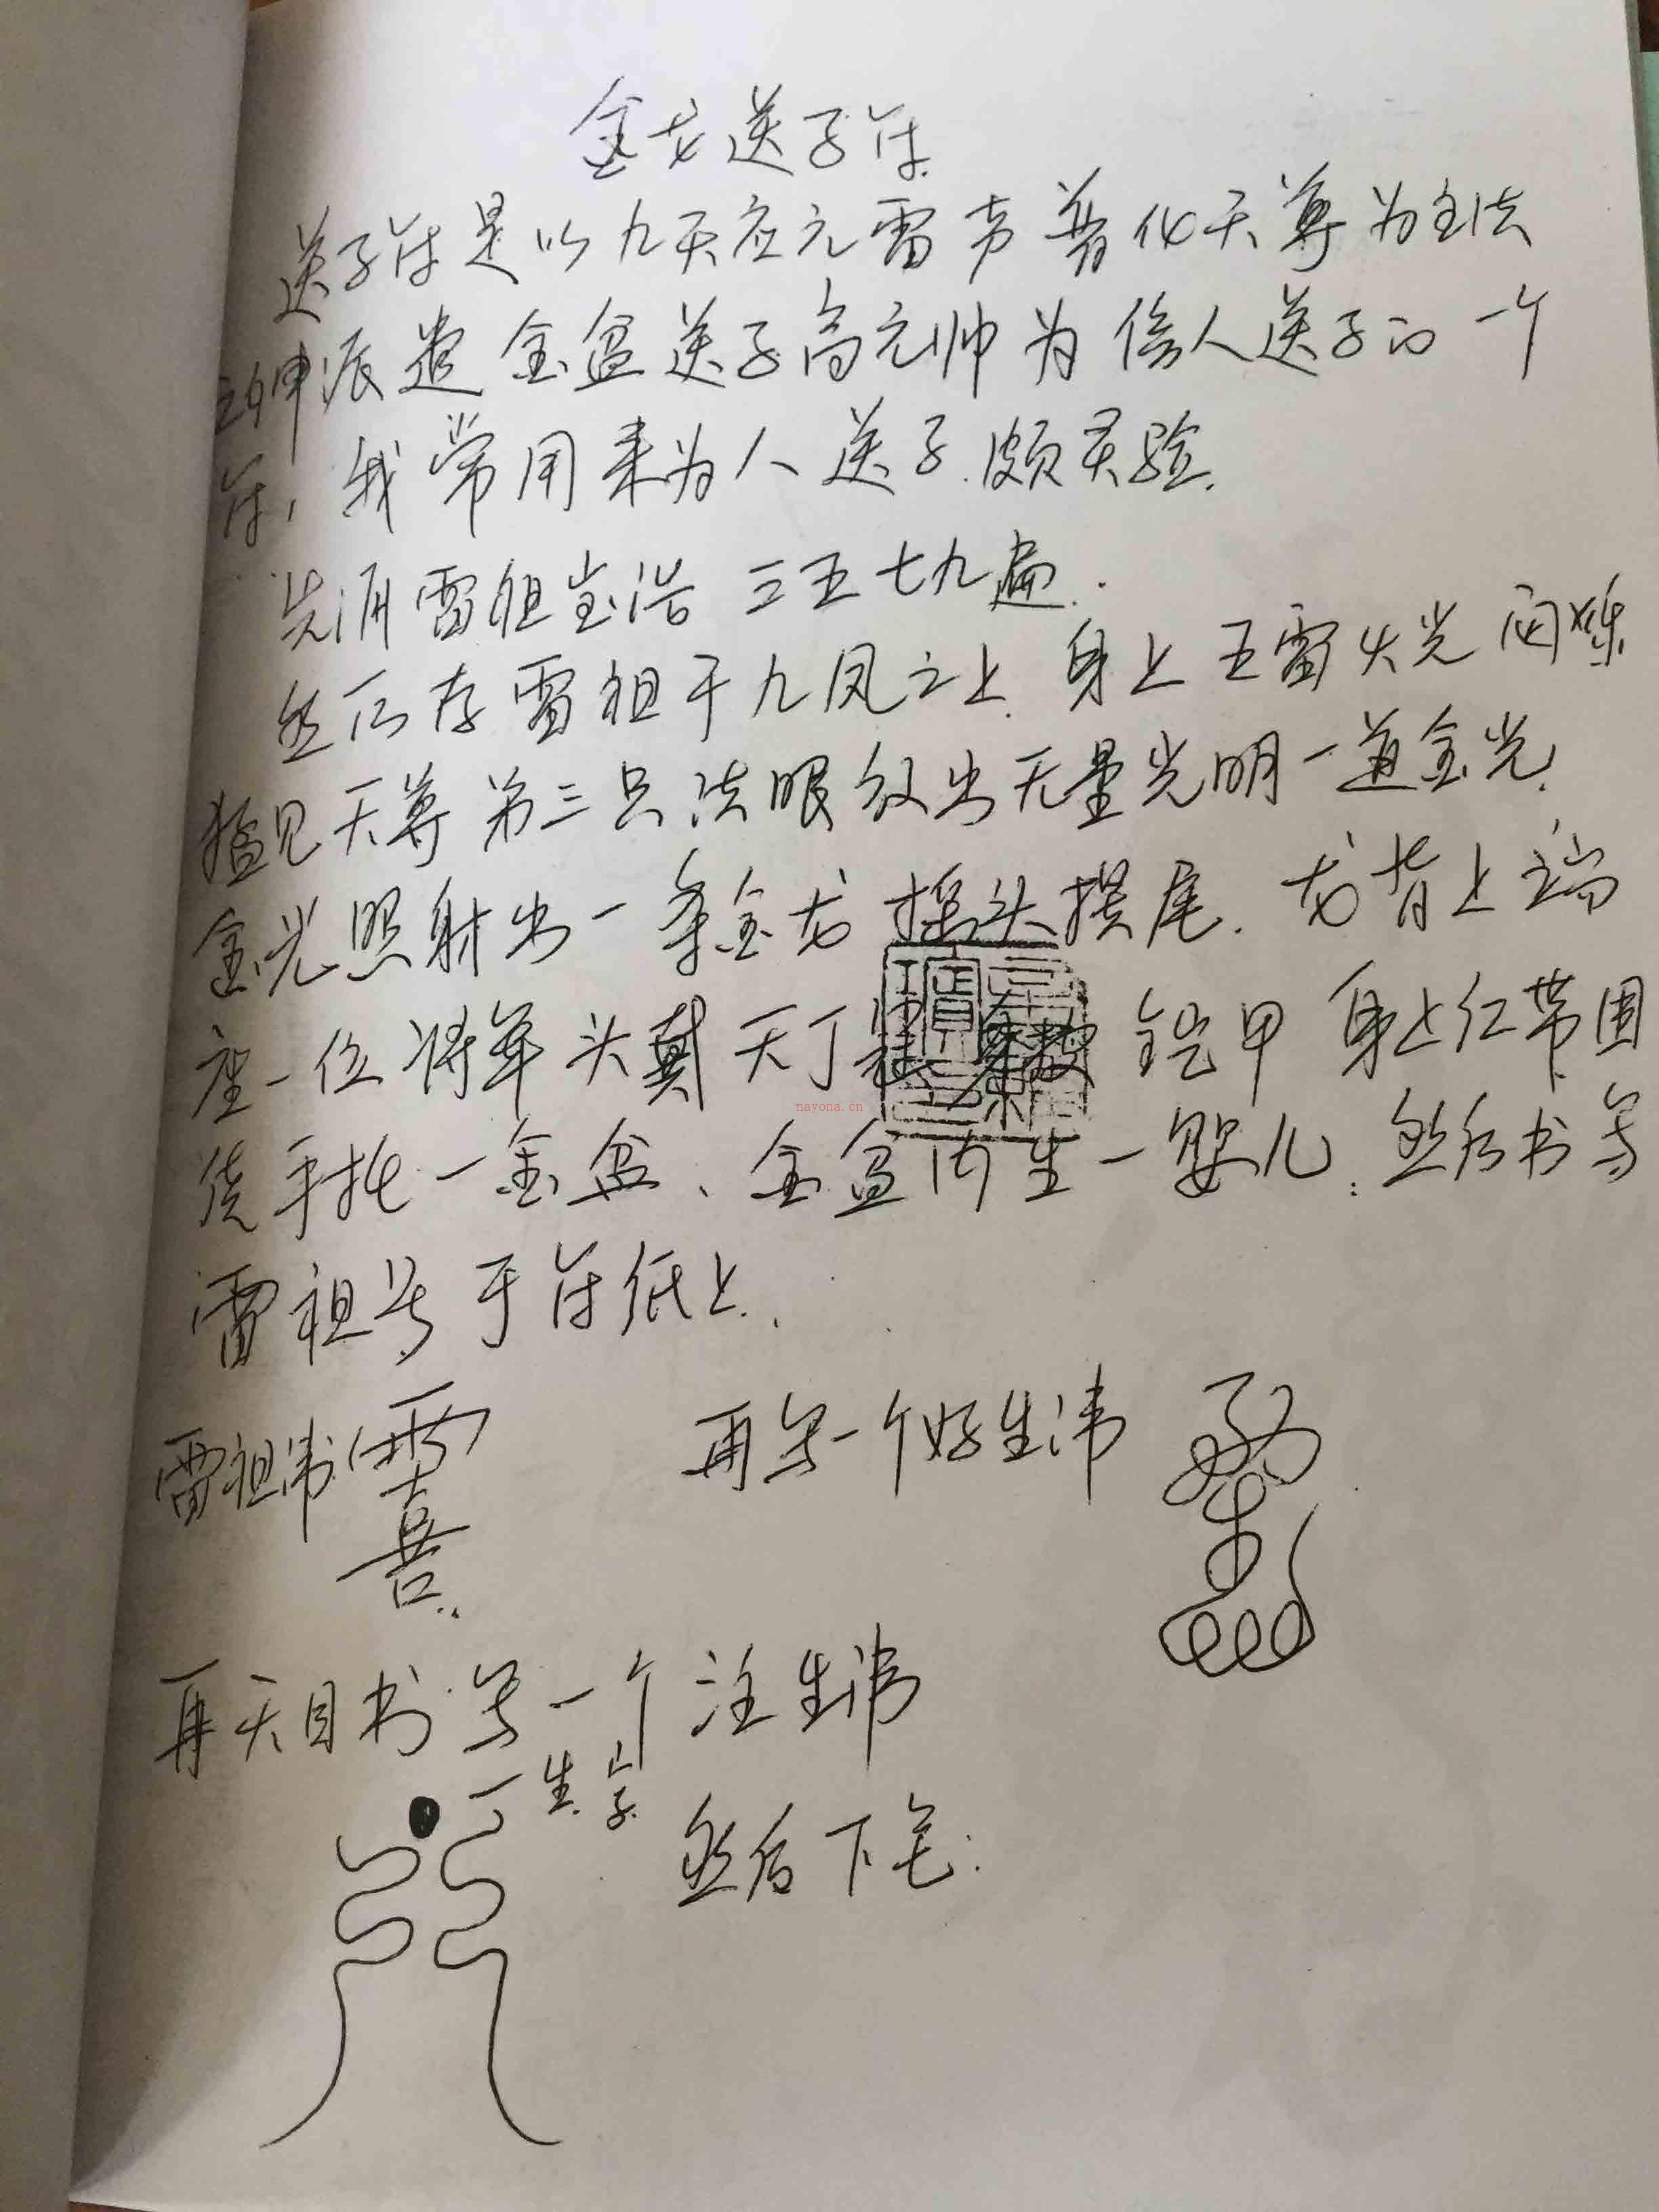 金龙送子符
送子符是以九天应元雷声普化天尊为主法
主神派遣金盆送子高元帅为信人送子的一个
符，我常用来为人送子.颇灵验.
先涌雷祖宝浩三五七九遍.
然后存雷祖于九凤之上.身上五雷火光闪烁
猛见天尊第三只法眼放出无量光明一道金光.
金光照射出一条金龙摇头摆尾.龙背上端
座一位将军头戴天丁冠身披铠甲身上红带围
绕手托一金盆、金盆内生一婴儿.然后书写
雷祖号于符纸上.
雷祖讳 再写一个好生讳
再天目书写一个注生讳
一生字
然后下笔:
nayona.cn